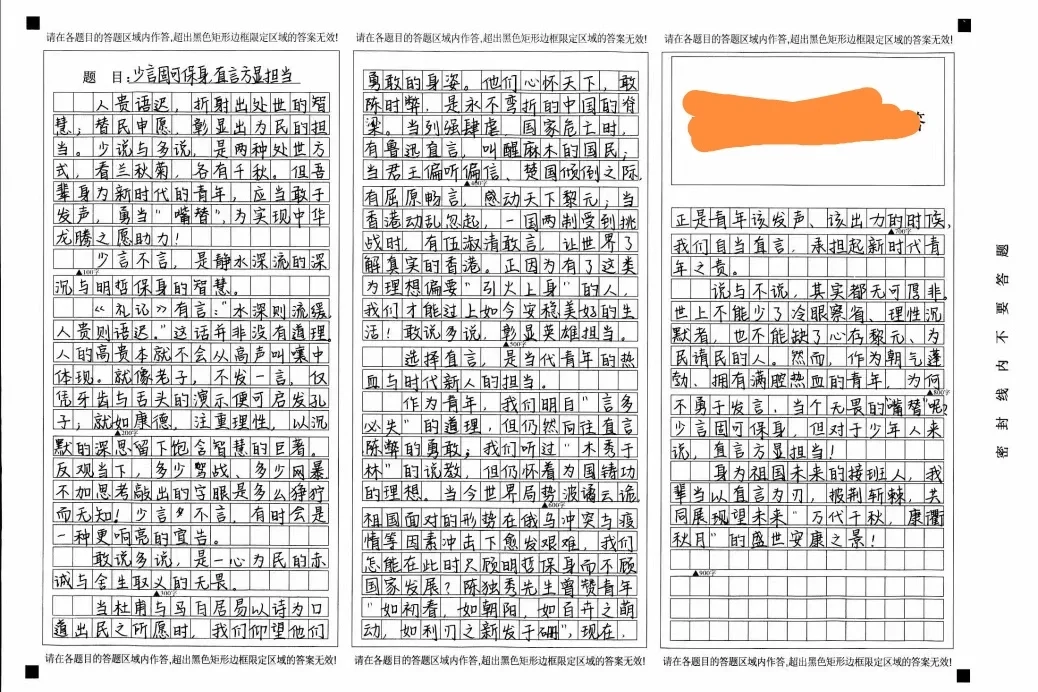 请在各题目的答题区域内作答,超出黑色矩形边框限定区域的答案无效!
题 目:少言固可保身,直言方显担当
人贵语迟,折射出处世的智
慧;替民申愿,彰显出为民的担
当。少说与多说,是两种处世方
式,看兰秋菊,各有千秋。但吾
辈身为新时代的青年,应当敢于
发声,勇当“嘴替”,为实现中华
龙腾之愿助力!
少言不言,是静水深流的深
▲100字
沉与明哲保身的智慧。
《礼记》有言:“水深则流缓,
人贵则语迟。”这话并非没有道理,
人的高贵本就不会从高声叫嚷中
体现。就像老子,不发一言,仅
凭牙齿与舌头的演示便可启发孔
子;就如康德,注重理性,以沉
▲200字
默的深思留下饱含智慧的巨著。
反观当下,多少骂战、多少网暴
不加思考敲出的字眼是多么狰狞
而无知!少言不言,有时会是
一种更响亮的宣告。
敢说多说,是一心为民的赤
诚与舍生取义的无畏。
▲300字
当杜甫与马白居易以诗为口
道出民之所愿时,我们仰望他们
请在各题目的答题区域内作答,超出黑色矩形边框限定区域的答案无效!
请在各题目的答题区域内作答,超出黑色矩形边框限定区域的答案无效!
勇敢的身姿。他们心怀天下,敢
陈时弊,是永不弯折的中国的脊
梁。当列强肆虐,国家危亡时,
有鲁迅直言,叫醒麻木的国民;
当君王偏听偏信、楚国倾倒之际,
▲400字
有屈原畅言,感动天下黎元;当
香港动乱忽起,一国两制受到挑
战时,有伍淑清敢言,让世界了
解真实的香港。正因为有了这类
为理想偏要“引火上身”的人,
我们才能过上如今安稳美好的生
活!敢说多说,彰显英雄担当。
▲500字
选择直言,是当代青年的热
血与时代新人的担当。
作为青年,我们明白“言多
必失”的道理,但仍然向往直言
陈弊的勇敢;我们听过“木秀于
林”的说教,但仍怀着为国铸功
的理想。当今世界局势波谲云诡
▲600字
祖国面对的形势在俄乌冲突与疫
情等因素冲击下愈发艰难,我们
怎能在此时只顾明哲保身而不顾
国家发展?陈独秀先生曾赞青年
“如初春,如朝阳,如百卉之萌
动,如利刃之新发于硎”,现在,
请在各题目的答题区域内作答,超出黑色矩形边框限定区域的答案无效!
请在各题目的答题区域内作答,超出黑色矩形边框限定区域的答案无效!
正是青年该发声、该出力的时候,
▲700字
我们自当直言,承担起新时代青
年之责。
说与不说,其实都无可厚非。
世上不能少了冷眼察省、理性沉
默者,也不能缺了心存黎元、为
民请民的人。然而,作为朝气蓬
勃、拥有满腔热血的青年,为何
▲800字
不勇于发言,当个无畏的“嘴替”呢?
少言固可保身,但对于少年人来
说,直言方显担当!
身为祖国未来的接班人,我
辈当以直言为刃,披荆斩棘,共
同展现望未来“万代千秋,康衢
秋月”的盛世安康之景!
▲900字
请在各题目的答题区域内作答,超出黑色矩形边框限定区域的答案无效!
密 封 线 内 不 要 答 题